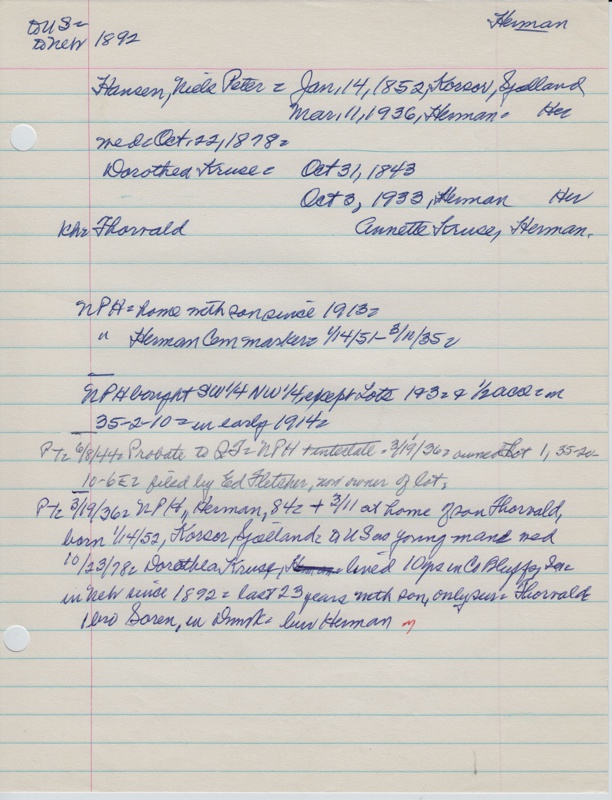 Herman
to US=
to Neb 1892
Hansen, Niels Peter = Jan, 14, 1852, Korsor, Sjolland
Mar, 11, 1936, Herman= Her
wed= Oct. 22, 1878=
Dorothea Kruse= Oct 31, 1843
Oct 3, 1933, Herman Her
kh= Thorvald Annette Kruse, Herman.
NPH= home with son since 1913=
" Herman Cem marker= 1/14/51- 3/11/35=
NPH bought SW 1/4 NW 1/4, except Lots 1+3= & 1/2 acre= in
35-2-10= in early 1914=
PT= 6/8/44= Probate to QT= NPH + intestate - 3/19/36= owned Lot 1, 35-20-
10-6E= filed by Ed Fletcher, now owner of lot,
PT= 3/19/36= NPH, Herman, 84= + 3/11 at home of son Thorvald,
born 1/14/52, Korsor, Sjolland= to US as young man= wed
10/23/78= Dorothea Kruse, = lived 10 yrs in C Bluffs, Ia=
in Neb since 1892= last 23 years with son, only sur= Thorvald=
1 bro Soren, in Dnmk= bur Herman